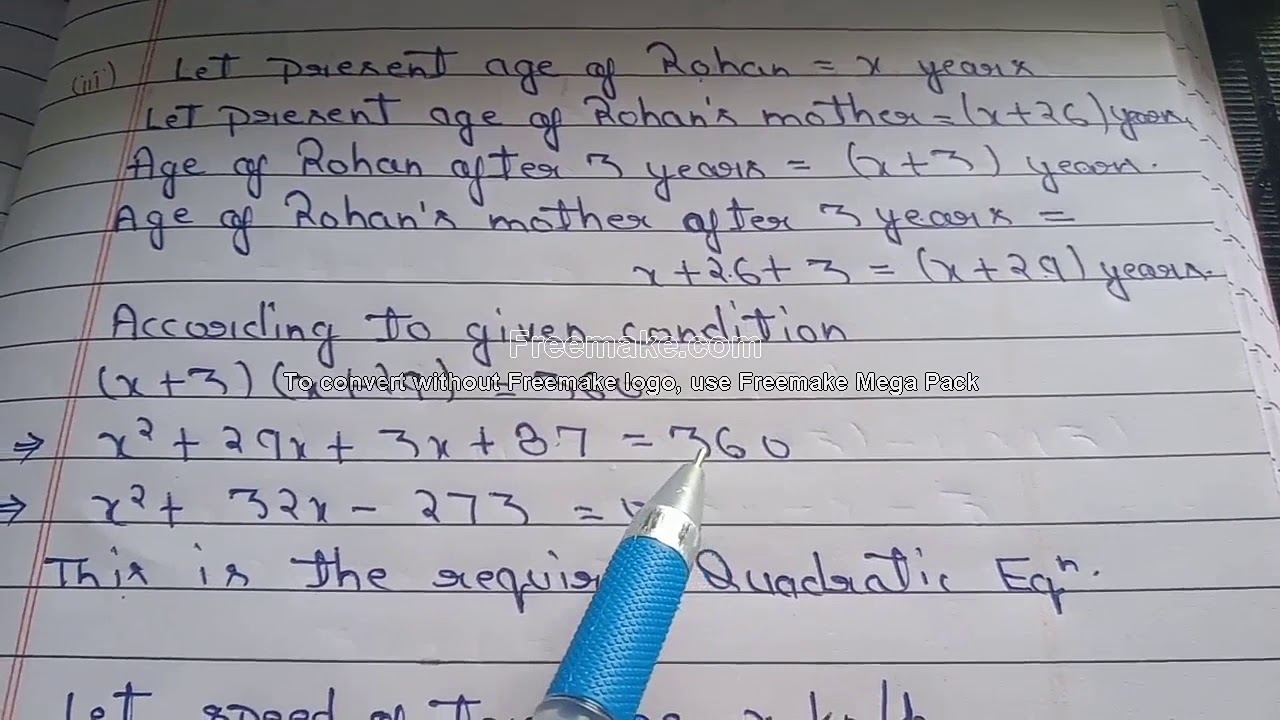 (iii) Let present age of Rohan = x years
Let present age of Rohan's mother = (x+26) years.
Age of Rohan after 3 years = (x+3) years.
Age of Rohan's mother after 3 years =
x+26+3 = (x+29) years.
According to given condition
Freemake.com
(x+3) (x+29) = 360
To convert without Freemake logo, use Freemake Mega Pack
⇒ x² + 29x + 3x + 87 = 360
⇒ x² + 32x - 273 =
This is the Quadratic Eqⁿ.
Let speed of